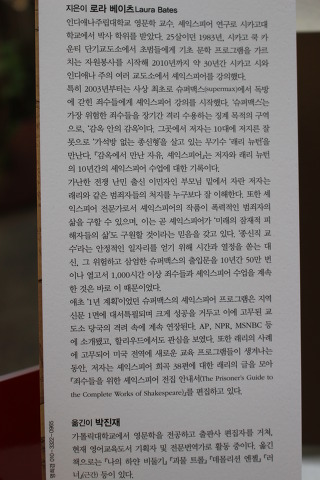 지은이 로라 베이츠 Laura Bates
인디애나주립대학교 영문학 교수. 셰익스피어 연구로 시카고대
학교에서 박사 학위를 받았다. 25살이던 1983년, 시카고 쿡 카
운티 단기교도소에서 초범들에게 기초 문학 프로그램을 가르
치는 자원봉사를 시작해 2010년까지 약 30년간 시카고 시와
인디애나 주의 여러 교도소에서 셰익스피어를 강의했다.
특히 2003년부터는 사상 최초로 슈퍼맥스(supermax)에서 독방
에 갇힌 죄수들에게 셰익스피어 강의를 시작했다. '슈퍼맥스'는
가장 위험한 죄수들을 장기간 격리 수용하는 징계 목적의 구역
으로, '감옥 안의 감옥'이다. 그곳에서 저자는 10대에 저지른 잘
못으로 '가석방 없는 종신형'을 살고 있는 무기수 '래리 뉴턴'을
만난다. 『감옥에서 만난 자유, 셰익스피어』는 저자와 래리 뉴턴
의 10년간의 셰익스피어 수업에 대한 기록이다.
가난한 전쟁 난민 출신 이민자인 부모님 밑에서 자란 저자는
래리와 같은 범죄자들의 처지를 누구보다 잘 이해한다. 또한 셰
익스피어 전문가로서 셰익스피어의 작품이 폭력적인 범죄자의
삶을 구할 수 있으며, 이는 곧 셰익스피어가 '미래의 잠재적 피
해자들의 삶'도 구원할 것이라는 믿음을 갖고 있다. '종신직 교
수'라는 안정적인 일자리를 얻기 위해 시간과 열정을 쏟는 대
신, 그 위험하고 삼엄한 슈퍼맥스의 출입문을 10년간 50만 번
이나 열고서 1,000시간 이상 죄수들과 셰익스피어 수업을 계속
한 것은 바로 이 때문이었다.
애초 '1년 계획'이었던 슈퍼맥스의 셰익스피어 프로그램은 지역
신문 1면에 대서특필되며 크게 성공을 거두고 이에 고무된 교
도소 당국의 격려 속에 계속 연장된다. AP, NPR, MSNBC 등
에 소개됐고, 할리우드에서도 관심을 보였다. 또한 래리의 사례
에 고무되어 미국 전역에 새로운 교육 프로그램들이 생겨나는
동안, 저자는 셰익스피어 희곡 38편에 대한 래리의 글을 모아
『죄수들을 위한 셰익스피어 전집 안내서(The Prisoner's Guide to
the Complete Works of Shakespeare)』를 편집하고 있다.
옮긴이 박진재
가톨릭대학교에서 영문학을 전공하고 출판사 편집자를 거쳐,
현재 영어교육도서 기획자 및 전문번역가로 활동 중이다. 옮긴
책으로는 『나의 하얀 비둘기』 『괴물 트롤』 『데블리션 엔젤』 『러
너』(근간) 등이 있다.